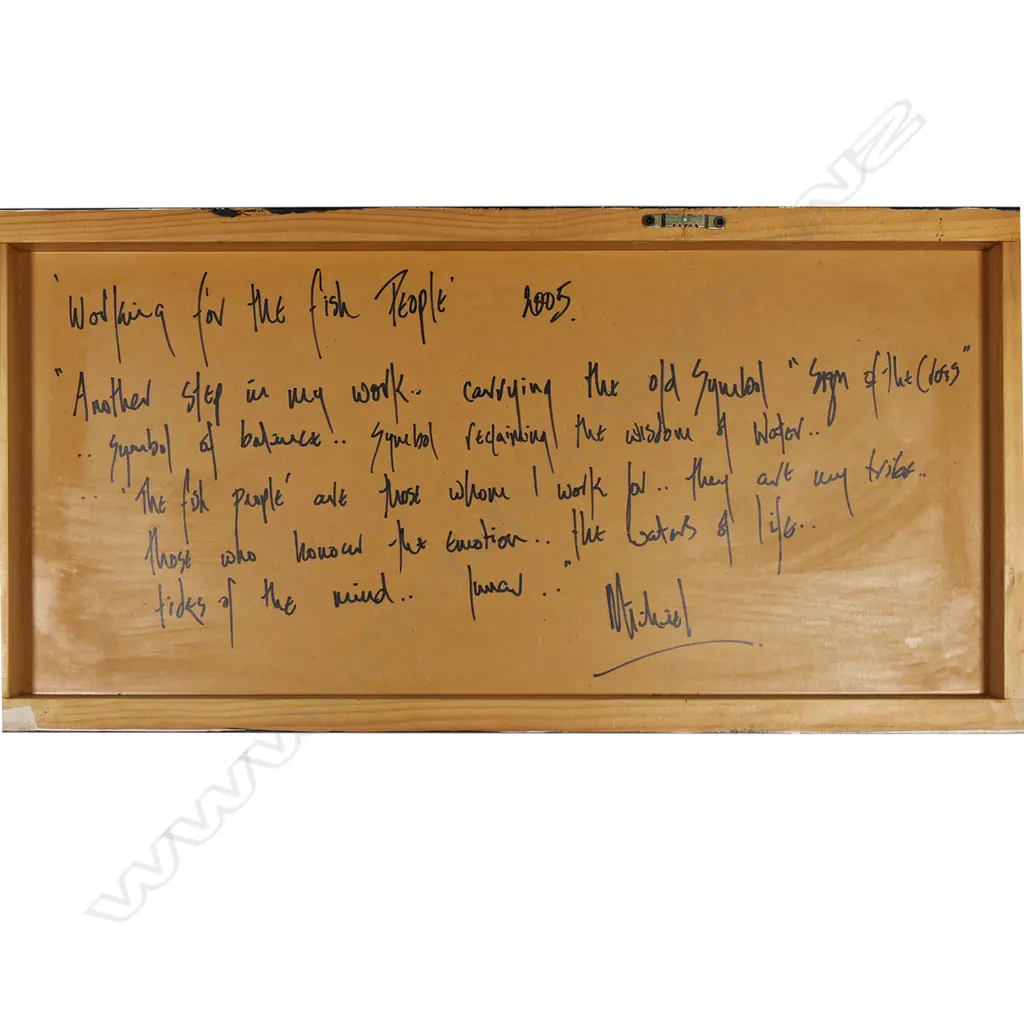 'Working for the fish People' 2005.
"Another step in my work.. carrying the old Symbol "Sign of the Cross"
.. Symbol of balance.. Symbol reclaiming the wisdom of Water..
.. 'The fish people' are those whom I work for.. they are my tribe..
those who honour the emotion.. the waters of life..
tides of the mind.. lunar .."
Michael